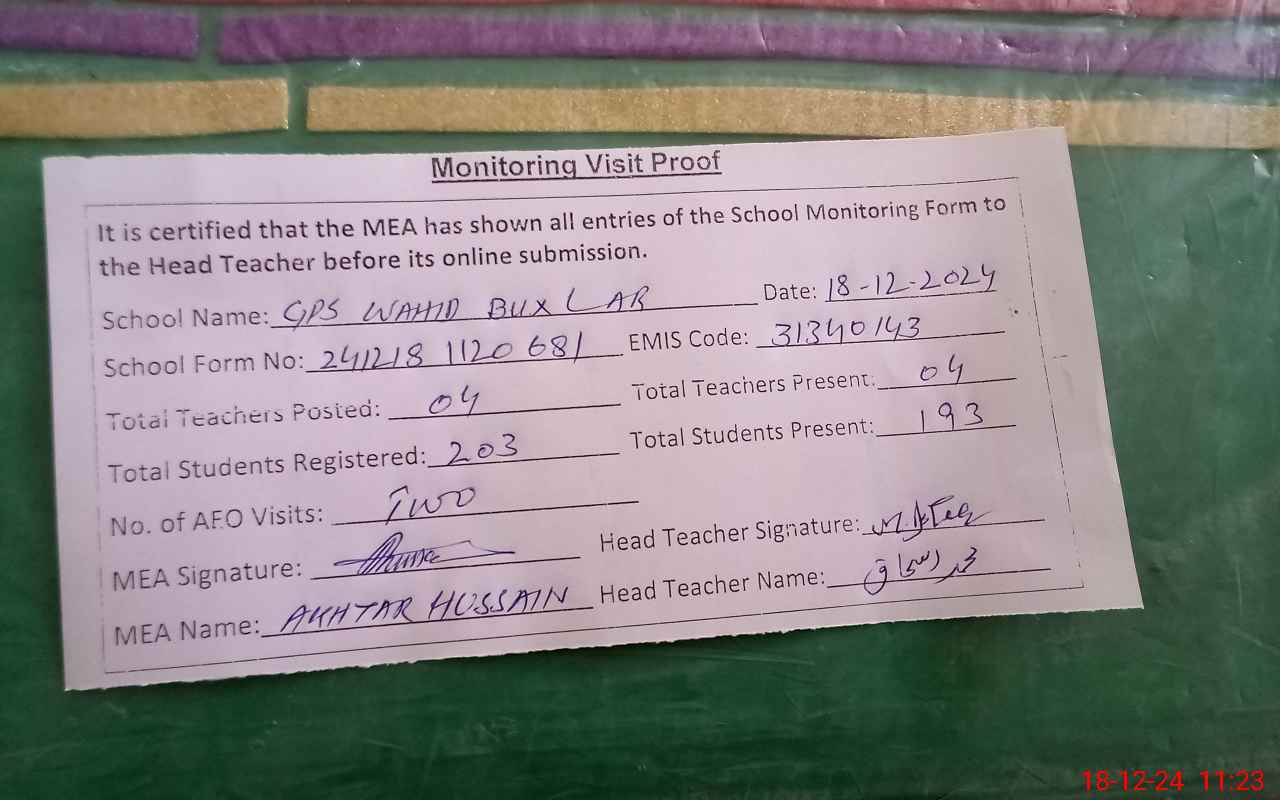 Monitoring Visit Proof
It is certified that the MEA has shown all entries of the School Monitoring Form to
the Head Teacher before its online submission.
School Name: GPS WAHID BUX LAR Date: 18-12-2024
School Form No: 241218 1120 681 EMIS Code: 31340143
Total Teachers Posted: 04 Total Teachers Present: 04
Total Students Registered: 203 Total Students Present: 193
No. of AEO Visits: Two
MEA Signature: Head Teacher Signature:
MEA Name: AKHTAR HUSSAIN Head Teacher Name: محمد اسحاق
18-12-24 11:23